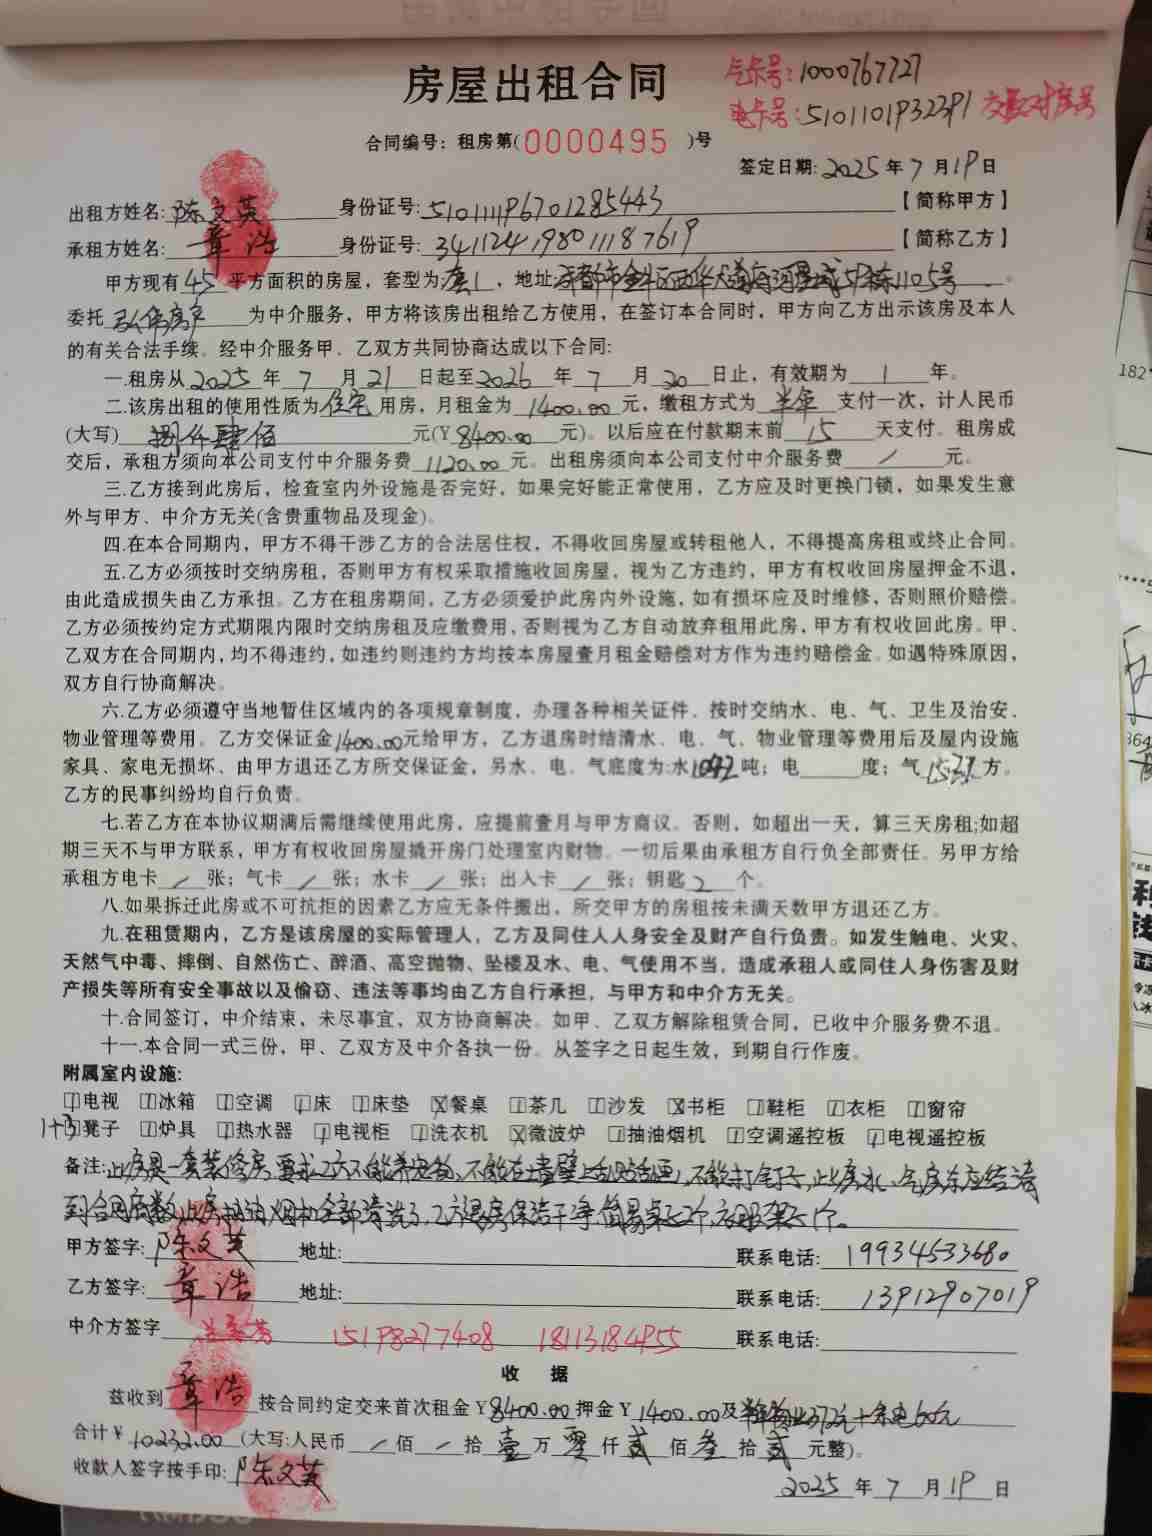 房屋出租合同
气卡号:1000767727
电卡号:5101101932391
合同编号:租房第(0000495)号
签定日期:2025年7月19日
出租方姓名:陈文英 身份证号:510111196701285443【简称甲方】
承租方姓名:章浩 身份证号:341124198011187619【简称乙方】
甲方现有45平方面积的房屋,套型为套1,地址:成都市金牛区西华大道 5栋1105号。
委托 房产 为中介服务,甲方将该房出租给乙方使用,在签订本合同时,甲方向乙方出示该房及本人
的有关合法手续。经中介服务甲、乙双方共同协商达成以下合同:
一.租房从2025年7月21日起至2026年7月20日止,有效期为1年。
二.该房出租的使用性质为住宅用房,月租金为1400.00元,缴租方式为半年支付一次,计人民币
(大写)捌仟肆佰元(Y8400.00元)。以后应在付款期末前15天支付。租房成
交后,承租方须向本公司支付中介服务费1120.00元。出租房须向本公司支付中介服务费/元。
三.乙方接到此房后,检查室内外设施是否完好,如果完好能正常使用,乙方应及时更换门锁,如果发生意
外与甲方、中介方无关(含贵重物品及现金)。
四.在本合同期内,甲方不得干涉乙方的合法居住权,不得收回房屋或转租他人,不得提高房租或终止合同。
五.乙方必须按时交纳房租,否则甲方有权采取措施收回房屋,视为乙方违约,甲方有权收回房屋押金不退,
由此造成损失由乙方承担。乙方在租房期间,乙方必须爱护此房内外设施,如有损坏应及时维修,否则照价赔偿。
乙方必须按约定方式期限内限时交纳房租及应缴费用,否则视为乙方自动放弃租用此房,甲方有权收回此房。甲、
乙双方在合同期内,均不得违约,如违约则违约方均按本房屋壹月租金赔偿对方作为违约赔偿金。如遇特殊原因,
双方自行协商解决。
六.乙方必须遵守当地暂住区域内的各项规章制度,办理各种相关证件、按时交纳水、电、气、卫生及治安、
物业管理等费用。乙方交保证金1400.00元给甲方,乙方退房时结清水、电、气、物业管理等费用后及屋内设施
家具、家电无损坏、由甲方退还乙方所交保证金,另水、电、气底度为:水1042吨;电 度;气 方。
乙方的民事纠纷均自行负责。
七.若乙方在本协议期满后需继续使用此房,应提前壹月与甲方商议。否则,如超出一天,算三天房租;如超
期三天不与甲方联系,甲方有权收回房屋撬开房门处理室内财物。一切后果由承租方自行负全部责任。另甲方给
承租方电卡/张;气卡/张;水卡/张;出入卡/张;钥匙2个。
八.如果拆迁此房或不可抗拒的因素乙方应无条件搬出,所交甲方的房租按未满天数甲方退还乙方。
九.在租赁期内,乙方是该房屋的实际管理人,乙方及同住人人身安全及财产自行负责。如发生触电、火灾、
天然气中毒、摔倒、自然伤亡、醉酒、高空抛物、坠楼及水、电、气使用不当,造成承租人或同住人身伤害及财
产损失等所有安全事故以及偷窃、违法等事均由乙方自行承担,与甲方和中介方无关。
十.合同签订,中介结束,未尽事宜,双方协商解决。如甲、乙双方解除租赁合同,已收中介服务费不退。
十一.本合同一式三份,甲、乙双方及中介各执一份。从签字之日起生效,到期自行作废。
附属室内设施:
电视 冰箱 空调 床 床垫 餐桌 茶几 沙发 书柜 鞋柜 衣柜 窗帘
1+3 凳子 炉具 热水器 电视柜 洗衣机 微波炉 抽油烟机 空调遥控板 电视遥控板
备注:此房是一套装修房,要求乙方不能养宠物,不能在墙壁上乱贴乱画,不能打钉子,此房水、气房东应结清
到合同底数,此房抽油烟机全部清洗了,乙方退房保洁干净,简易桌子2个,衣服架子1个。
甲方签字:陈文英 地址: 联系电话:19934533680
乙方签字:章浩 地址: 联系电话:13912907019
中介方签字 15198277408 18113184955 联系电话:
收 据
兹收到章浩按合同约定交来首次租金Y8400.00押金Y1400.00及半年物业372元+余电60元
合计¥10232.00(大写:人民币/佰/拾壹万零仟贰佰叁拾贰元整)。
收款人签字按手印:陈文英
2025年7月19日